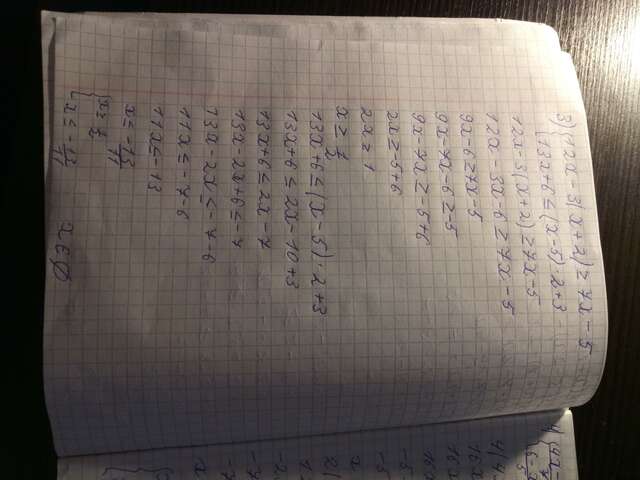 3) { 12x - 3(x + 2) ≥ 7x - 5
{ 13x + 6 ≤ (x - 5) · 2 + 3
12x - 3(x + 2) ≥ 7x - 5
12x - 3x - 6 ≥ 7x - 5
9x - 6 ≥ 7x - 5
9x - 7x - 6 ≥ -5
9x - 7x ≥ -5 + 6
2x ≥ -5 + 6
2x ≥ 1
x ≥ 1/2
13x + 6 ≤ (x - 5) · 2 + 3
13x + 6 ≤ 2x - 10 + 3
13x + 6 ≤ 2x - 7
13x - 2x + 6 ≤ -7
13x - 2x ≤ -7 - 6
11x ≤ -7 - 6
11x ≤ -13
x ≤ -13/11
{ x ≥ 1/2
{ x ≤ -13/11
x ∈ ∅